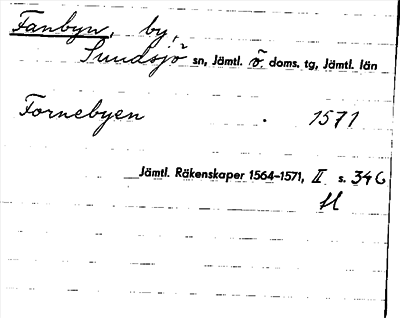 Fanbyn, by,
Sundsjö sn, Jämtl. ö. doms. tg, Jämtl. län
Fornebyen . 1571
Jämtl. Räkenskaper 1564-1571, II s. 346